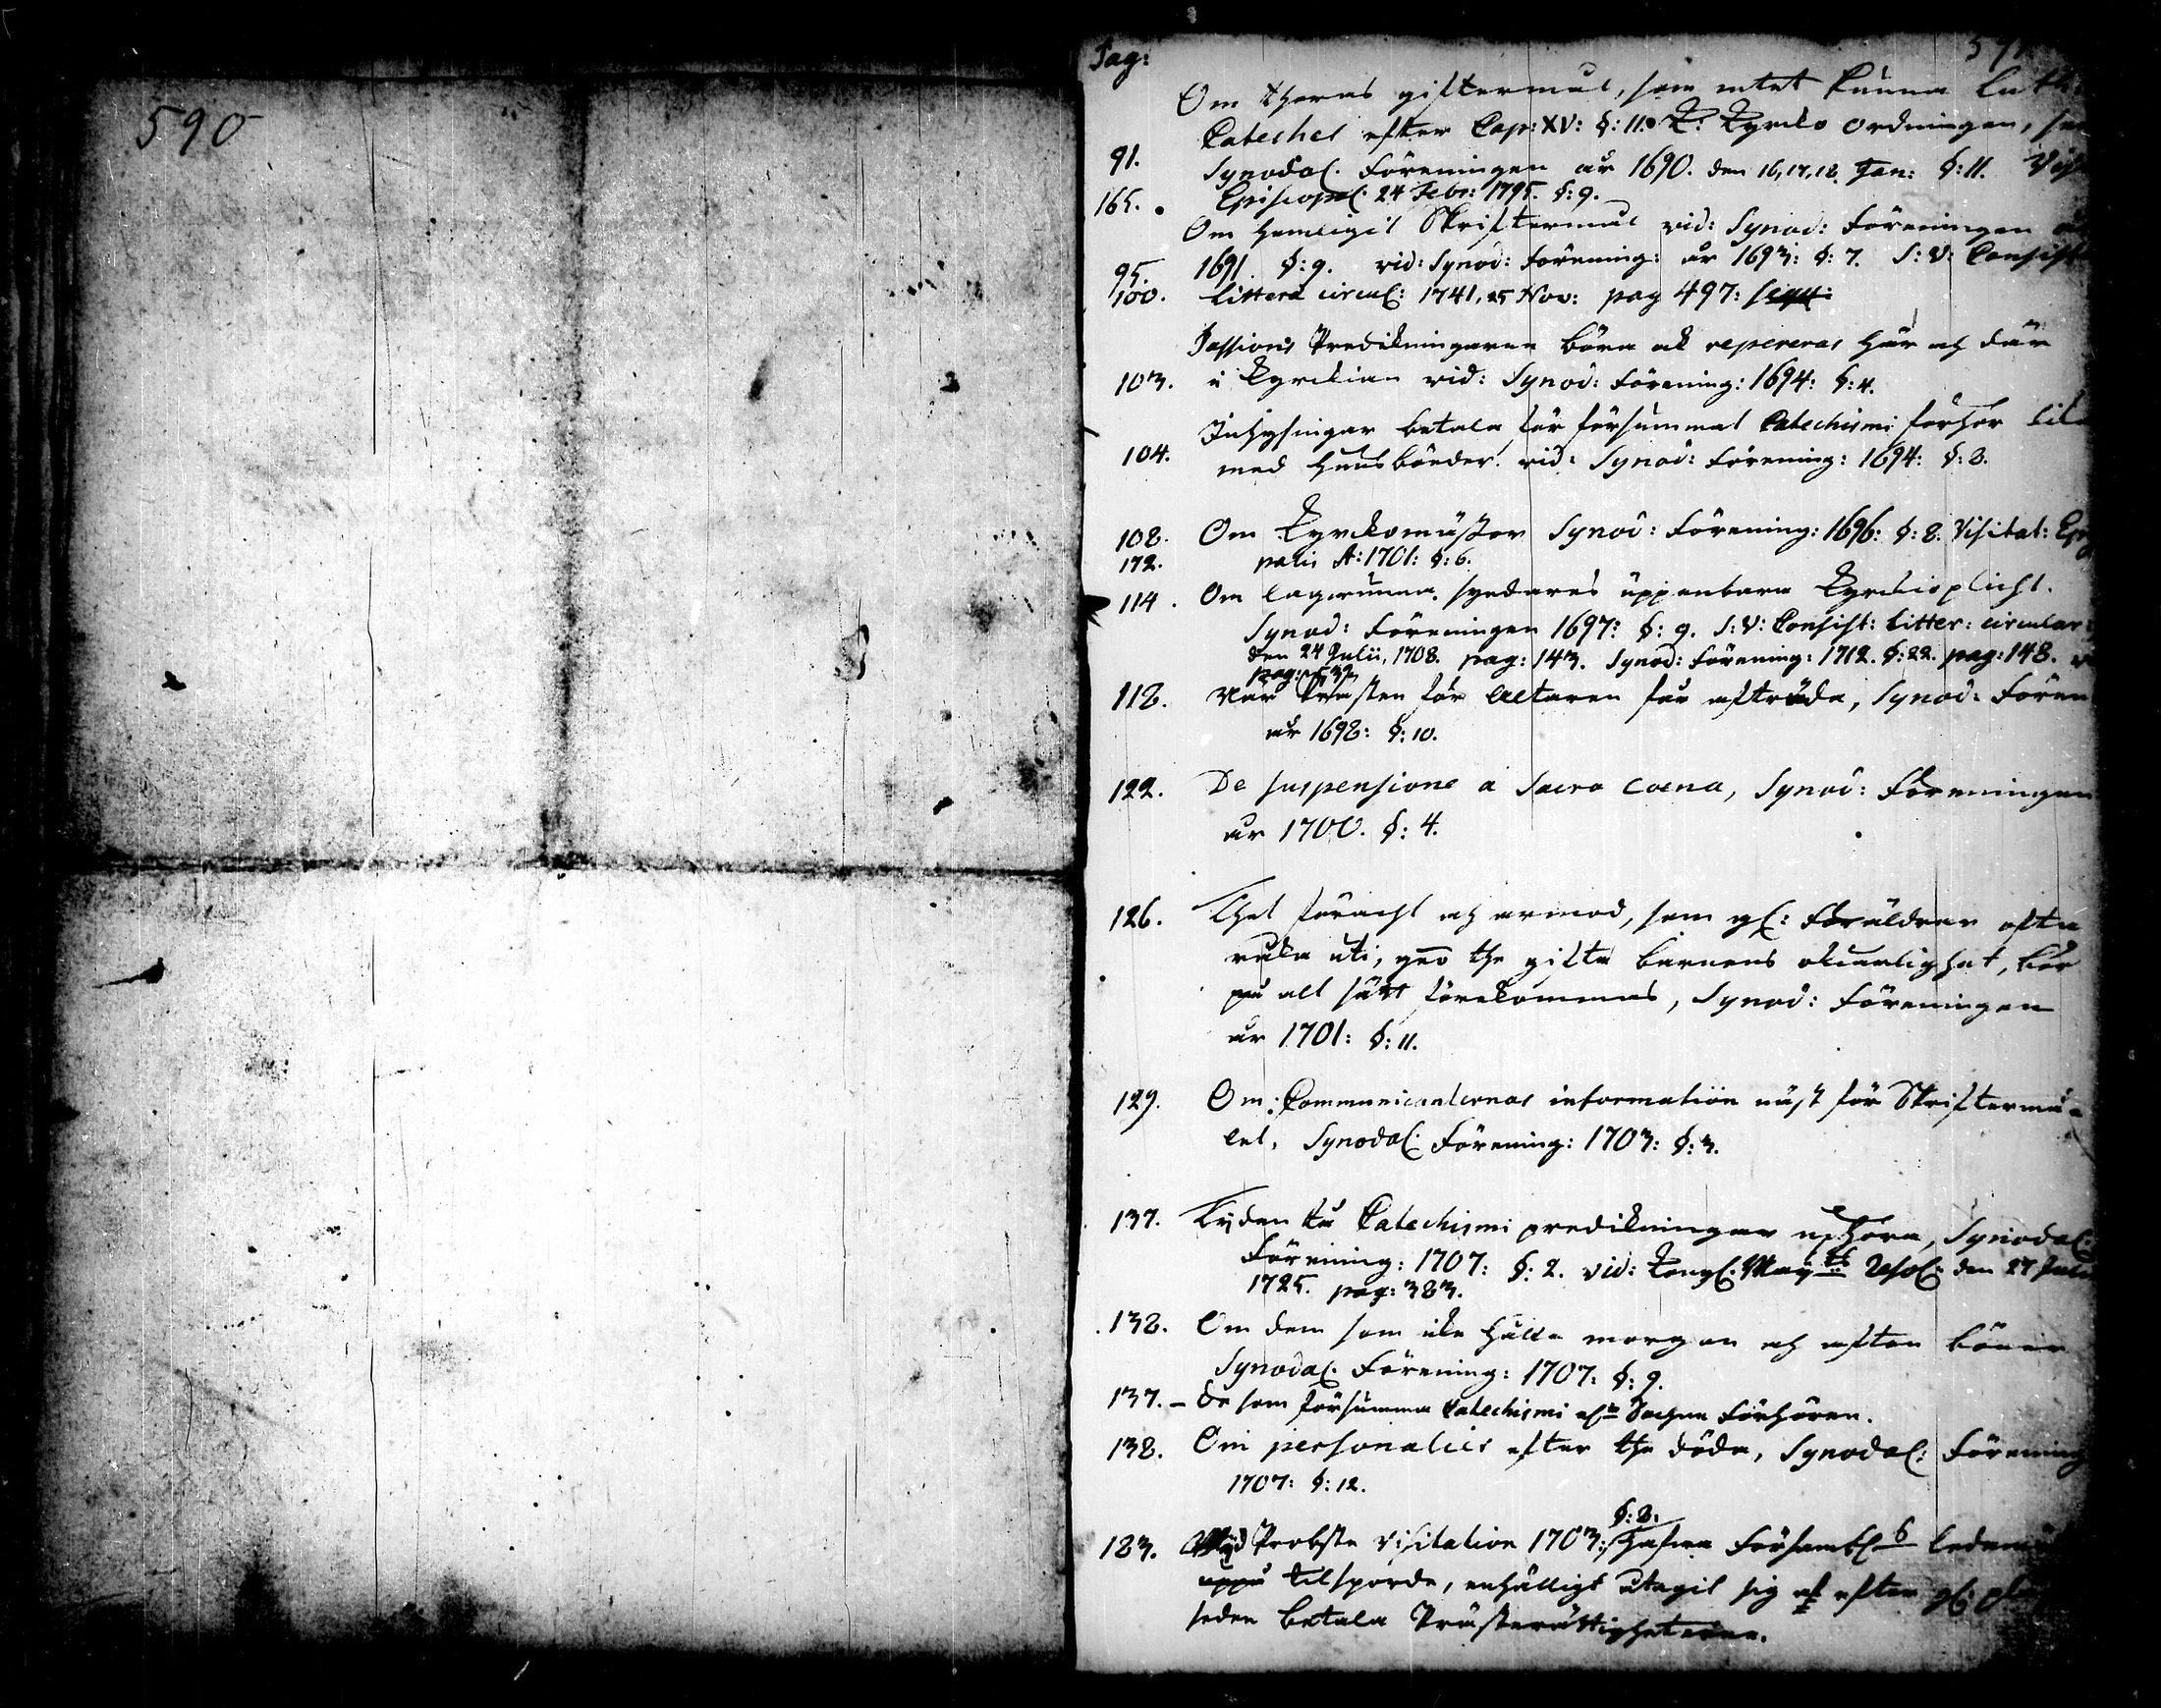 590
Pag: 591
Om theras giftermål, som intet kunna Luth:
Cateches efter Cap: XV: §: 11. K. Kyrcko ordningen,
91. Synodal. Föreningen år 1690. den 16, 17, 18. Jan: §: 11.
165. Episcopal. 24 Febr: 1795. §: 9.
Om hemligit Skriftermål vid: Synod: Föreningen
95. 1691. §: 9. vid: Synod: Förening: år 1693: §: 7. S: V: Consist
100. Litteræ circul: 1741, 25 Nov: pag 497:
Passions Predikningarne böra ok repeteras här och där
103. i Kyrckian vid: Synod: Förening: 1694: §: 4.
Inhysningar betala för försummat Catechismi förhör lika
104. med husbönder. vid: Synod: Förening: 1694: §: 8.
108. Om Kyrckomästor Synod: Förening: 1696: §: 8. Visitat: Episco
172. palis A: 1701: §: 6.
114. Om lagwunna syndares uppenbara Kyrckioplicht.
Synod: Föreningen 1697: §: 9. S: V: Consist: Litter: circular:
den 24 Julii, 1708. pag: 143. Synod: Förening: 1712. §: 22. pag: 148.
pag: 532
118. När Prästen för Altaren får afträda, Synod: Fören
år 1698: §: 10.
122. De suspensione a Sacra Coena, Synod: Föreningen
år 1700. §: 4.
126. Thet föracht och armod, som gl: Föräldrar ofta
råka uti, geno the gifta barnens okiärlighet, bör
på alt sätt förekommas, Synod: Föreningen
år 1701: §: 11.
129. Om Communicanternas information näst för Skriftermå-
let, Synodal. Förening: 1703: §: 3.
137. Tyden tå Catechismi predikningar uphöra, Synodal:
Förening: 1707: §: 2. vid: Kongl: Mayts Resol: den 27 Julii
1725. pag: 383.
138. Om dem som icke hålla morgon och afton böner
Synodal. Förening: 1707: §: 9.
137. – De som försumma Catechismi och Sochne Förhören.
138. Om personalier efter the döda, Synodal: Förening
1707: §: 12.
§: 8:
183. Wyd Probste Visitation 1703: hafwa Församlls ledamö
tilsporde, enhälligt åtagit sig at efter gl: pläg
seden betala Prästerättigheterne.